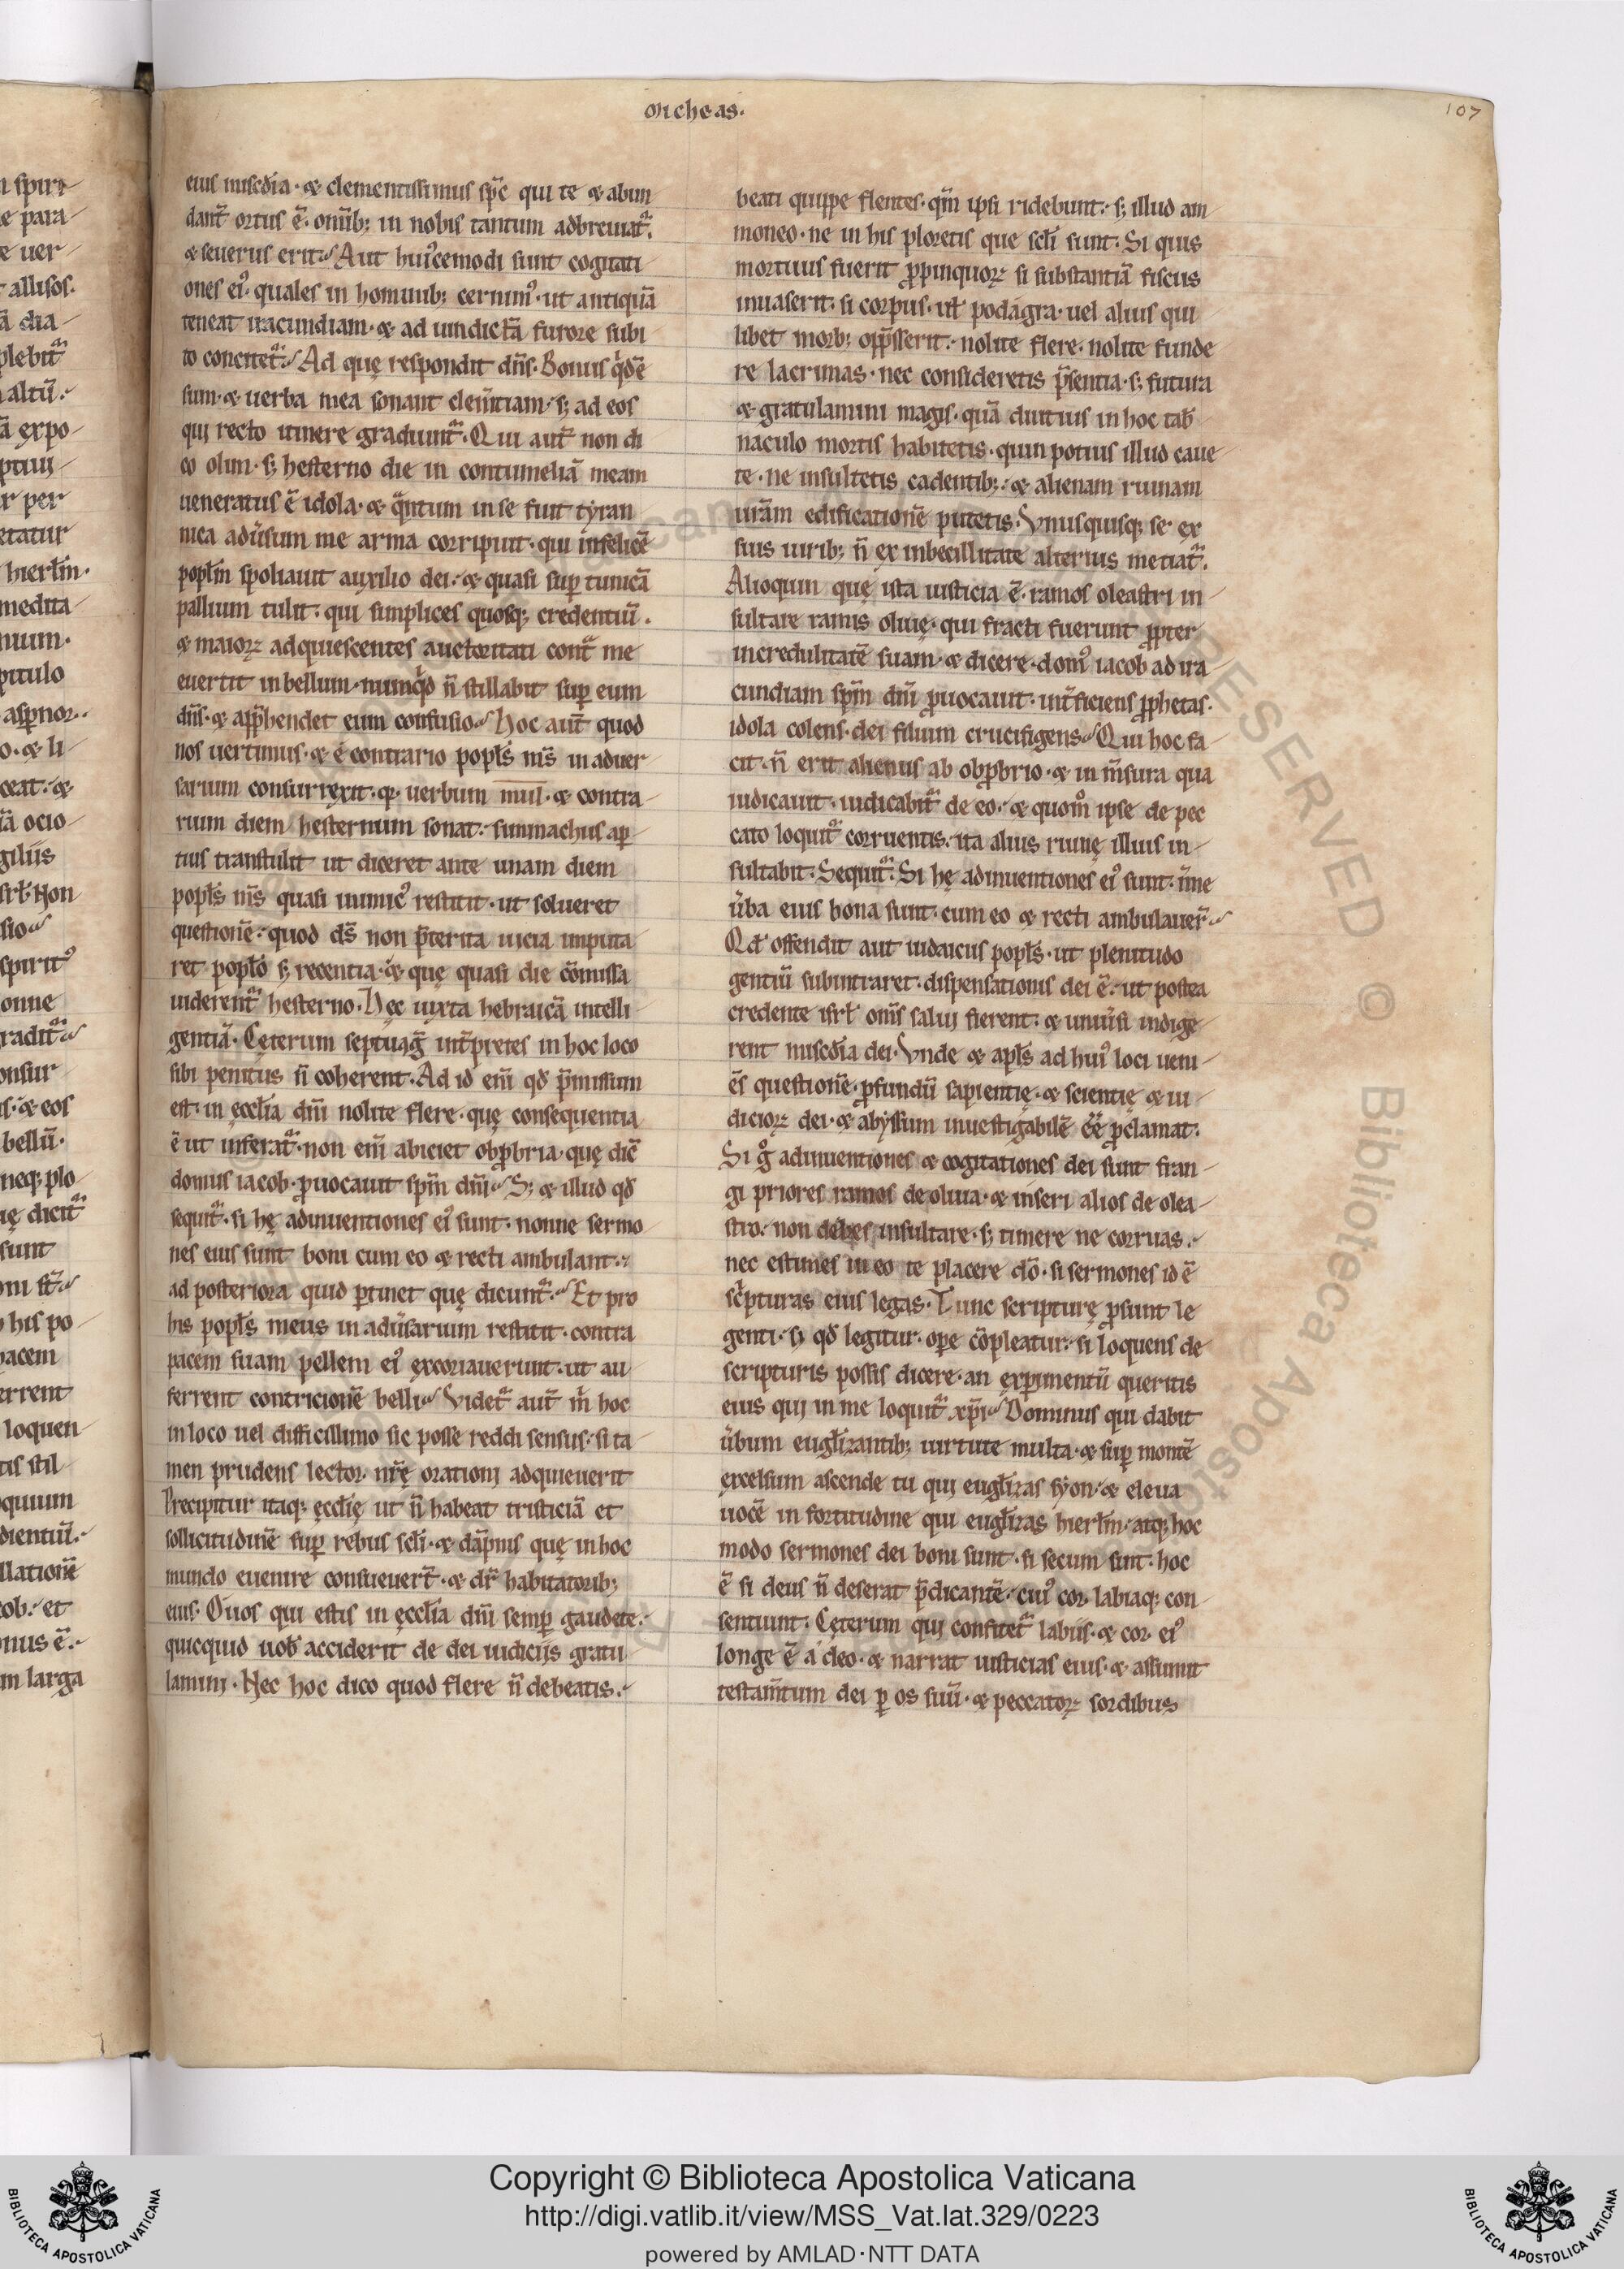 Micheas.
107
eius misc̄dia · & clementissimus sp̄c qui te & abun
dant̄ ortus ē · om̄ib; in nobis tantum adbreuiat᷑.
& seuerus erit · Aut hui᷒cemodi sunt cogitati
ones ei᷒ · quales in hominib; cernim᷒ · ut antiquā
teneat iracundiam · & ad uindictā furore subi
to concitet᷑ · Ad quę respondit dn̄s · Bonus qͥdē
sum · & uerba mea sonant clem̄tiam · s; ad eos
qui recto itinere gradiunt᷑ · Qui aut̄ non di
co olim · s; hesterno die in contumeliā meam
ueneratus ē idola · & qᷓntum in se fuit tyran
nica adu̾sum me arma corripuit · qui infelicē
popl̄m spoliauit auxilio dei · & quasi sup̱ tunicā
pallium tulit · qui simplices quosq; credentiū ·
& maioꝝ adquiescentes auctoritati contᷓ me
euertit in bellum · nunqͥd n̄ stillabit sup̱ eum
dn̄s · & app̄hendet eum confusio · Hoc aut̄ quod
nos uertimus · & e contrario popl̄s m̄s in aduer
sarium consurrexit · qꝛ uerbum mul · & contra
rium diem hesternum sonat · simmachus ap̱
tius transtulit ut diceret ante unam diem
popl̄s m̄s quasi inimic᷒ restitit · ut solueret
questionē · quod ds̄ non p̄terita uicia imputa
ret popl̄o s; recentia · & quę quasi die cōmissa
uiderent᷑ hesterno · Hęc iuxta hebraicā intelli
gentiā · Cęterum septuaḡ int̄pretes in hoc loco
sibi penitus n̄ coherent · Ad id eni̅ qd̄ p̄missum
est · in ęccl̄ia dn̄i nolite flere · quę consequentia
ē ut inferat᷑ · non eni̅ abiciet obꝓbria · quę dic̄
domus iacob · ꝓuocauit sp̄m dn̄i · S; & illud qd̄
sequit᷑ · si hę adinuentiones ei᷒ sunt · nonne sermo
nes eius sunt boni cum eo & recti ambulant ·
ad posteriora quid p̱tinet quę dicunt᷑ · Et pro
his popl̄s meus in adu̾sarium restitit · contra
pacem suam pellem ei᷒ excoriauerunt · ut au
ferrent contricionē belli · Videt᷑ aut̄ mͥ hoc
in loco uel difficillimo sic posse reddi sensus · si ta
men prudens lector · nr̄ę orationi adquieuerit
Precipitur itaq; ęcclię ut n̄ habeat tristiciā et
sollicitudinē sup̱ rebus scl̄i · & dāpnis quę in hoc
mundo euenire consueuer̄t · & dr̄ habitatorib;
eius · O uos qui estis in ęccl̄ia dn̄i semp̱ gaudete ·
quicquid uob̄ acciderit de dei iudiciis gratu
lamini · Nec hoc dico quod flere n̄ debeatis ·
beati quippe flentes · qm̄ ipsi ridebunt · s; illud am
moneo · ne in his ploretis que scl̄i sunt · Si quis
mortuus fuerit ꝓpinquoꝝ si substantiā fiscus
inuaserit · si corpus · ul̄ podagra · uel alius qui
libet morb; opp̄sserit · nolite flere · nolite funde
re lacrimas · nec consideretis p̄sentia · s; futura
& gratulamini magis · quā diutius in hoc tab̄
naculo mortis habitetis · quin potius illud caue
te · ne insultetis cadentib; · & alienam ruinam
ur̄am edificationē putetis · Vnusquisq; se ex
suis uirib; n̄ ex inbecillitate alterius metiat᷑.
Alioquin quę ista iusticia ē · ramos oleastri in
sultare ramis oliuę · qui fracti fuerunt ꝓpter
incredulitatē suam · & dicere · dom᷒ iacob ad ira
cundiam sp̄m dn̄i ꝓuocauit · int̄ficiens ꝓphetas ·
idola colens · dei filium crucifigens · Qui hoc fa
cit · n̄ erit alienus ab obꝓbrio · & in m̄sura qua
iudicauit · iudicabit᷑ de eo · & quom̊ ipse de pec
cato loquit᷑ corruentis · ita alius ruinę illius in
sultabit · Sequit᷑ · Si hę adinuentiones ei᷒ sunt · n̄ne
u̾ba eius bona sunt · cum eo & recti ambulauer̄ ·
Qd̄ offendit aut iudaicus popl̄s · ut plenitudo
gentiū subintraret · dispensationis dei ē · ut postea
credente isrl̄ om̄s salui fierent · & uniu̾si indige
rent misc̄dia dei · Vnde & apl̄s ad hui᷒ loci ueni
ēs questionē · ꝓfundū sapientię · & scientię & iu
dicioꝝ dei · & abyssum inuestigabilē ēē ꝓclamat ·
Si g̊ adinuentiones & cogitationes dei sunt fran
gi priores ramos de oliua · & inseri alios de olea
stro · non debes insultare · s; timere ne corruas ·
nec estimes in eo te placere dō · si sermones id ē
scͥpturas eius legas · Tunc scripturę ꝓsunt le
genti · si qd̄ legitur · op̱e cōpleatur · si loquens de
scripturis possis dicere · an exp̱imentū queritis
eius qui in me loquit᷑ xp̄i · Dominus qui dabit
u̾bum eugl̄izantib; uirtute multa · & sup̱ montē
excelsum ascende tu qui eugl̄izas syon · & eleua
uocē in fortitudine qui eugl̄izas hierl̄m · atq; hoc
modo sermones dei boni sunt · si secum sint · hoc
ē si deus n̄ deserat p̄dicantē · cui᷒ cor · labiaq; con
sentiunt · Cęterum qui confitet᷑ labiis · & cor · ei᷒
longe ē a deo · & narrat iusticias eius · & assumit
testam̄tum dei p̱ os suū · & peccatoꝝ sordibus
Copyright © Biblioteca Apostolica Vaticana
http://digi.vatlib.it/view/MSS_Vat.lat.329/0223
powered by AMLAD·NTT DATA
BIBLIOTECA APOSTOLICA VATICANA
BIBLIOTECA APOSTOLICA VATICANA